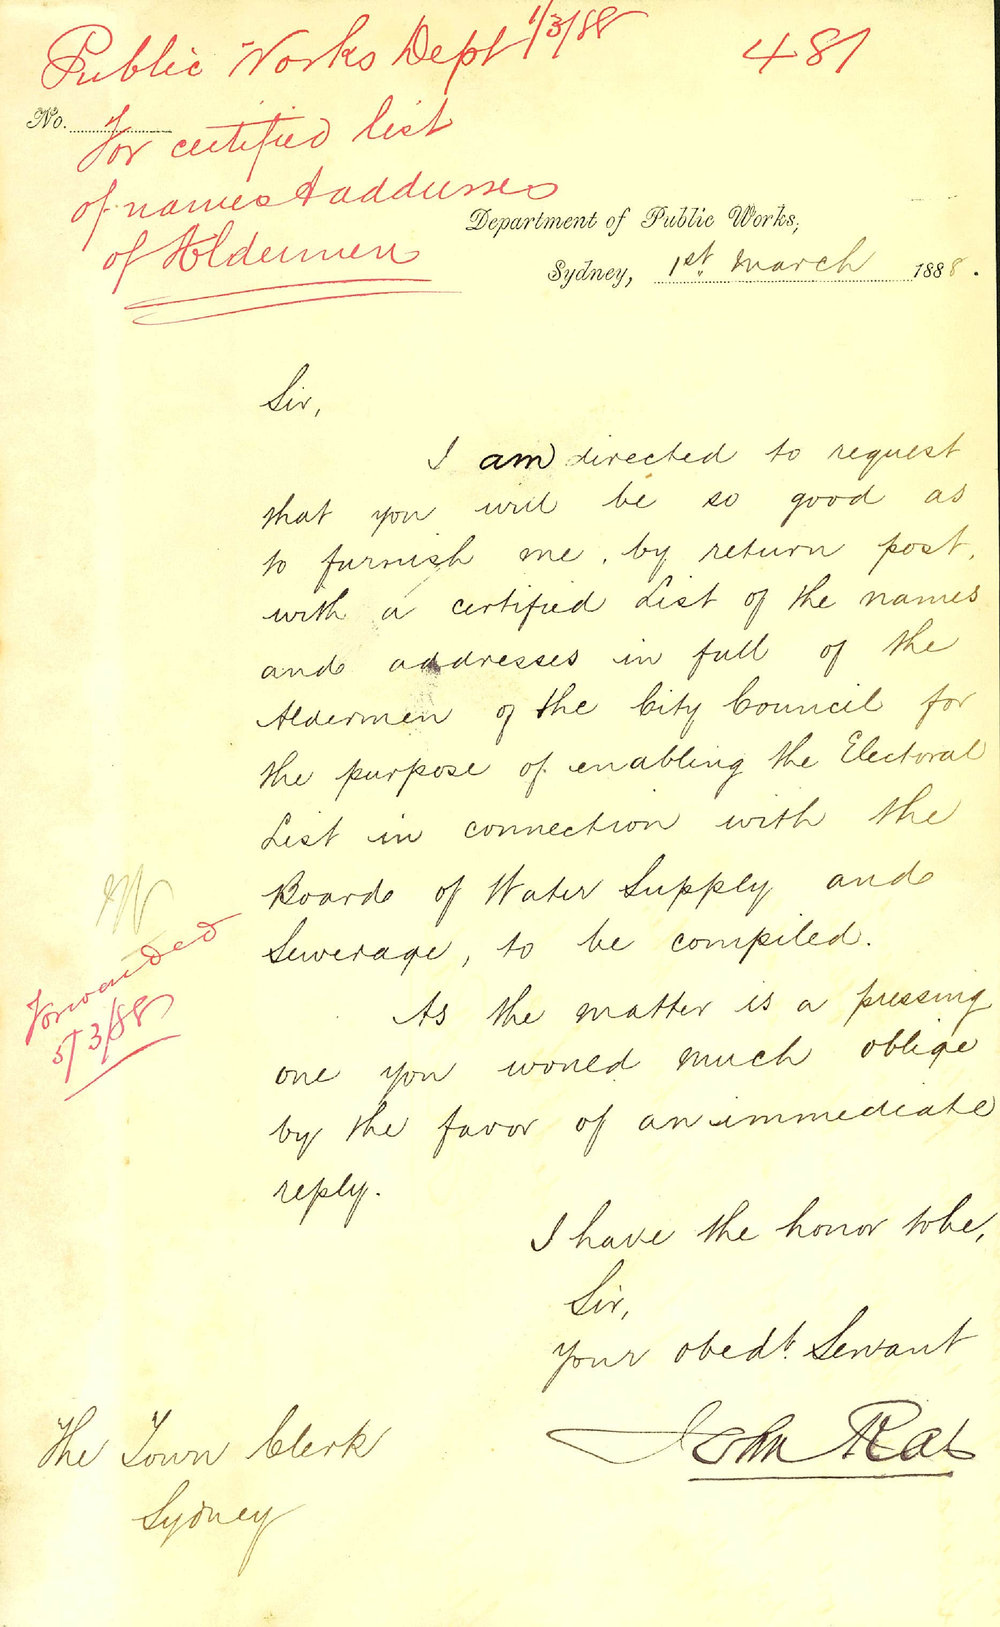 Public Works Dept 1/3/88
481
No.
For certified list
of names & addresses
of Aldermen
Department of Public Works,
Sydney, 1st March 1888.
Sir,
I am directed to request
that you will be so good as
to furnish me, by return post,
with a certified List of the names
and addresses in full of the
Aldermen of the City Council for
the purpose of enabling the Electoral
List in connection with the
Board of Water Supply and
Sewerage, to be compiled.
Forwarded
5/3/88
As the matter is a pressing
one you would much oblige
by the favor of an immediate
reply.
I have the honor to be,
Sir,
your obedt. Servant
John Rae
The Town Clerk
Sydney